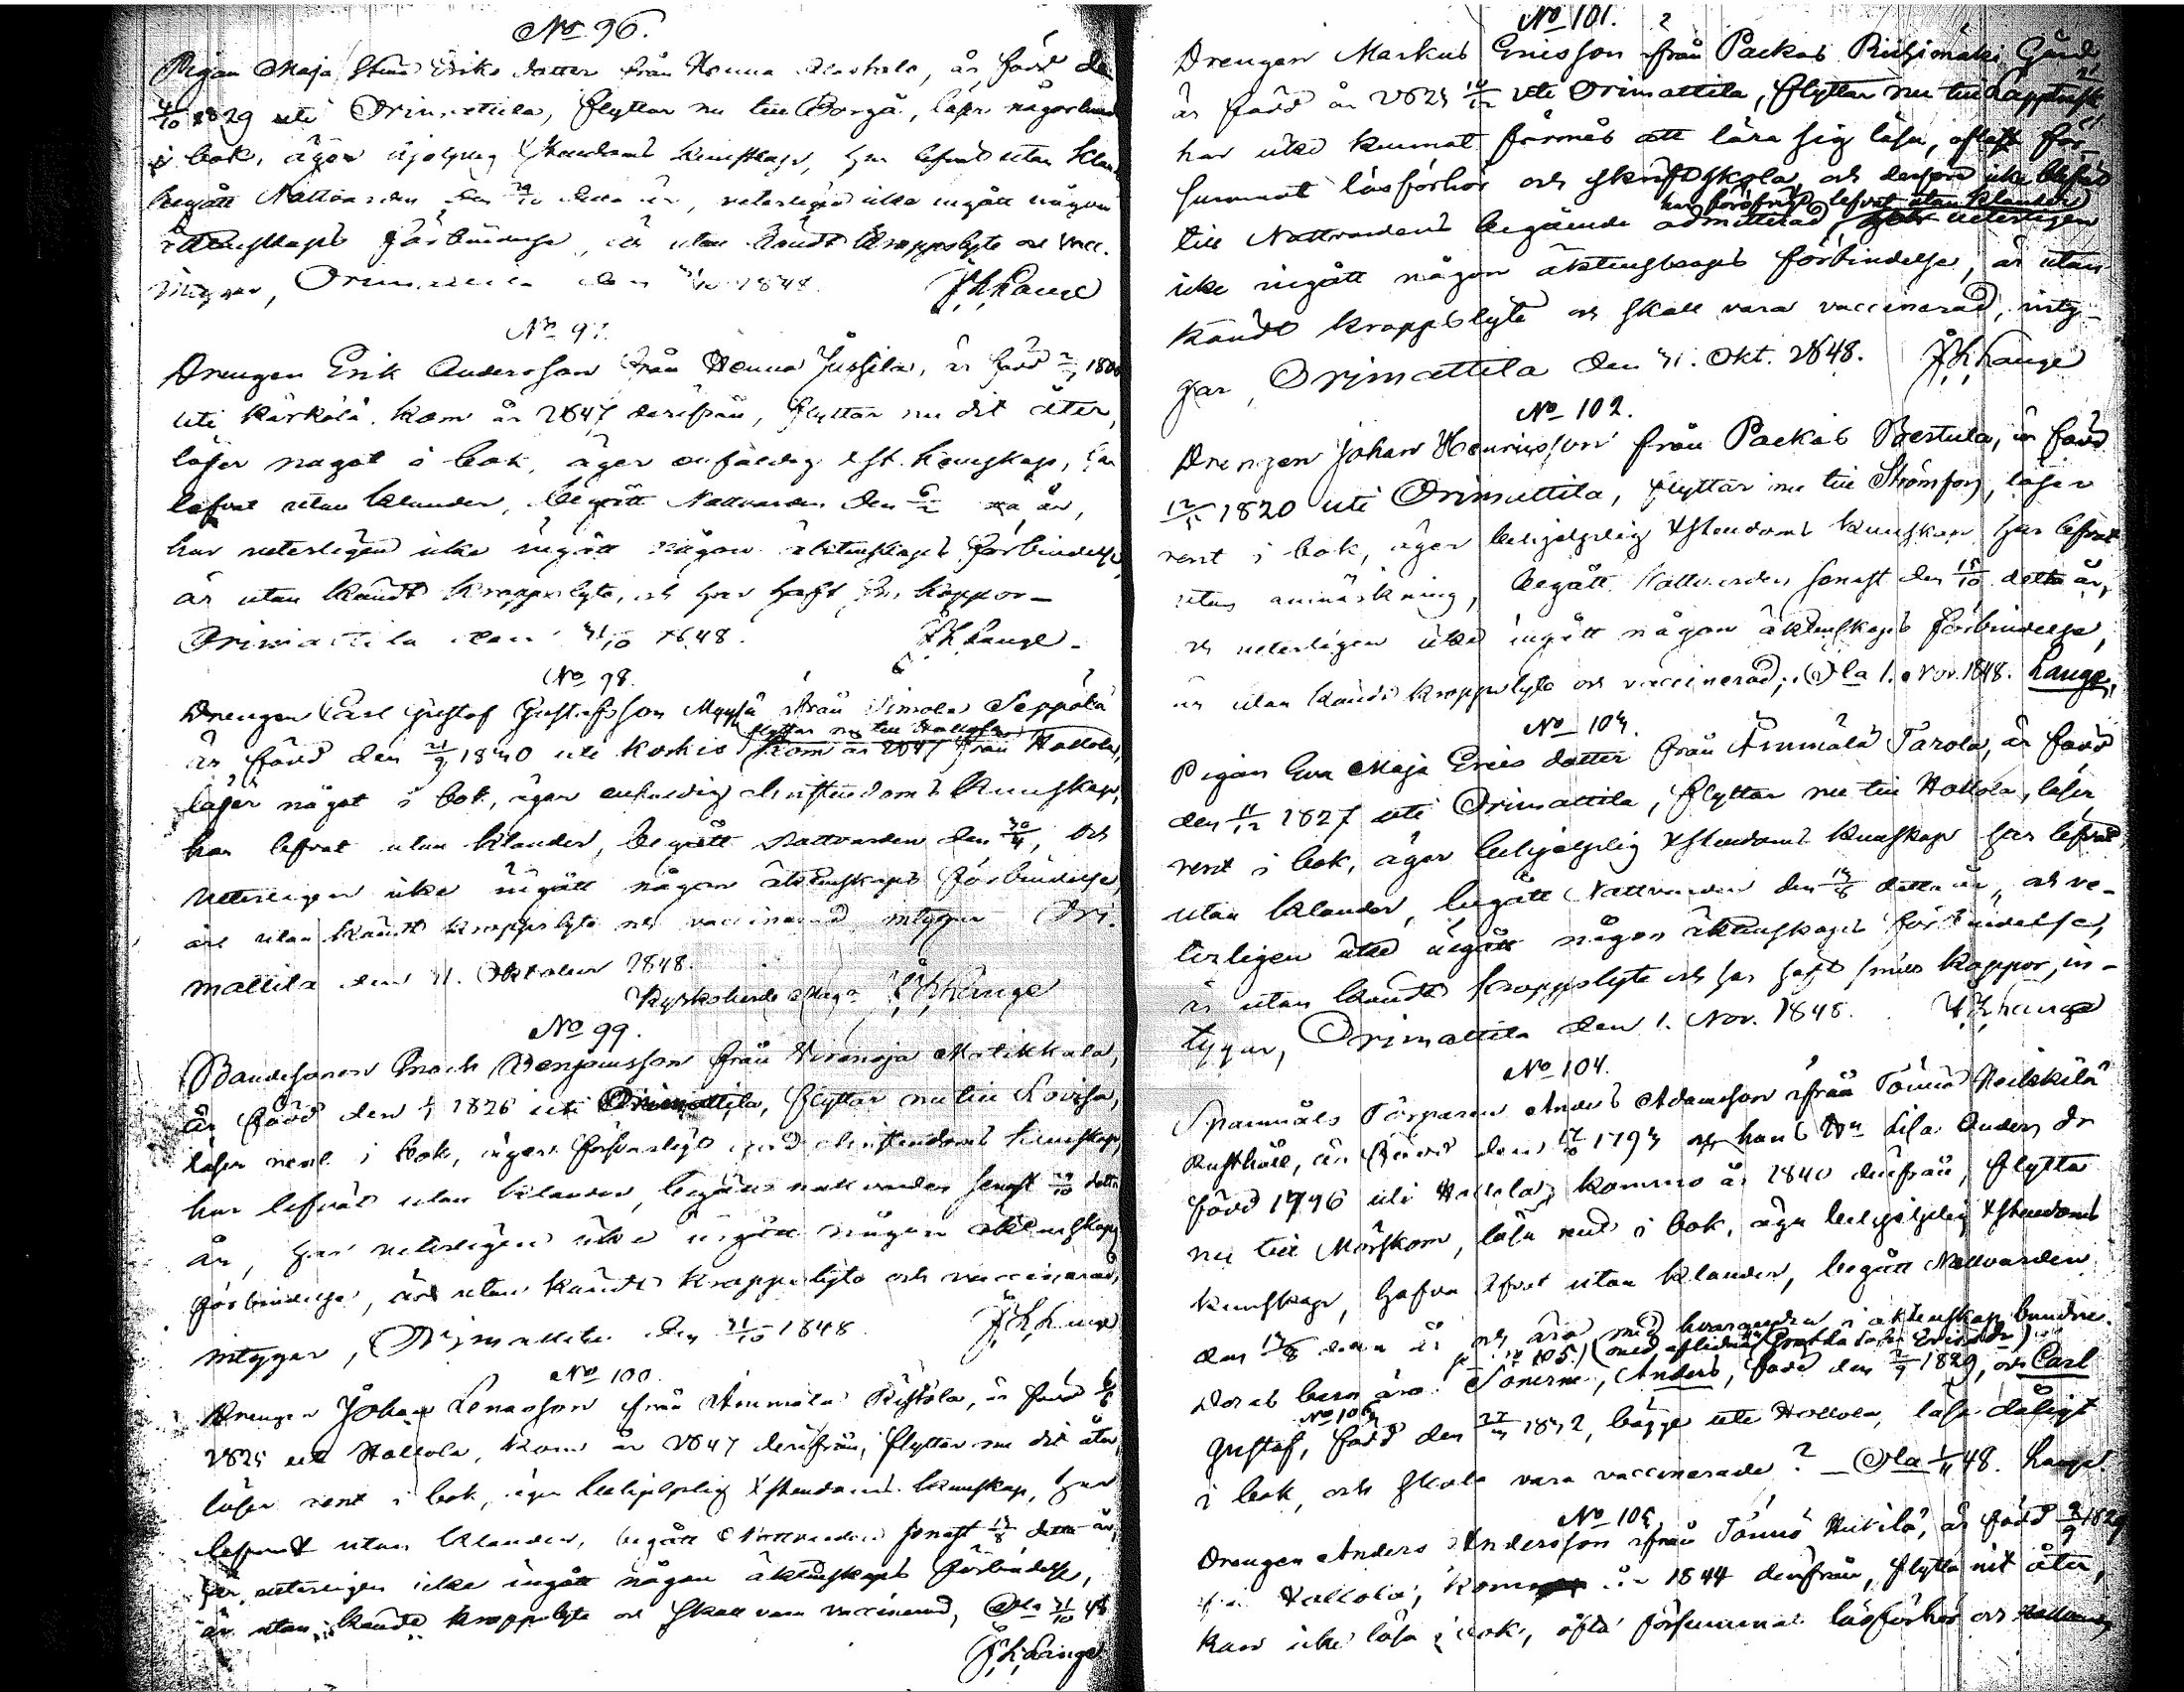 No 96.
Pigan Maja Stina Eriks dotter från Henna Alastalo, är född den
4/10 1829 uti Orimattila, flyttar nu till Borgå, läser någorlunda
i bok, äger Xstendoms kunskap, har lefvat utan klan
begått Nattvarden den 29/10 detta år, veterligen icke ingått någon
äktenskaps förbindelse, är utan kändt kroppslyte och vacc.
intygar, Orimattila den 31/10 1848. Lange
No 97.
Drengen Erik Andersson från Henna Jussila, är född
uti Kärkölä, kom år 1847 derifrån, flyttar nu dit åter,
läser något i bok, äger enfaldig Xst. kunskap, har
lefvat utan klander, begått Nattvarden den år,
har veterligen icke ingått någon äktenskaps förbindelse
är utan kändt kroppslyte, och har haft koppor_
Orimattila den 31/10 1848. Lange_
No 98.
Drengen Carl Gustaf Gustafsson Myyrä från Simola Seppälä
flyttar nu till Hollola
är född den 21/9 1830 uti Koskis kom år 1847 från Hollola,
läser något i bok, äger enfaldig christendoms kunskap,
har lefvat utan klander, begått Nattvarden den 30/4, och
veterligen icke ingått någon äktenskaps förbindelse
är utan kändt kroppslyte och vaccinerad intygar Ori.
mattila den 31. Oktober 1848.
Kyrkoherde Lange
No 99.
Bondesonen Enoch Benjamsson från Virenoja Matikkala,
är född den 1826 uti Orimattila, flyttar nu till Lovisa,
läser rent i bok, äger försvarligt god christendoms kunskap,
har lefvat utan klander, begått nattvarden senast 29/10 detta
år, har veterligen icke ingått någon äktenskaps
förbindelse, är utan kändt kroppslyte och vaccinerad,
intygar, Orimattila den 31/10 1848. Lange
No 100.
Drengen Johan Lenasson från Ammälä Ristola, är född 6/6
1825 uti Hollola, kom år 1847 derifrån, flyttar nu dit åter,
läser rent i bok, äger behjelplig Xstendoms kunskap, har
lefvat utan klander, begått Nattvarden senast 13/8 detta år,
har veterligen icke ingått någon äktenskaps förbindelse,
är utan kändt kroppslyte och skall vara vaccinerad, Ola 31/10 48
Lange
No 101.
Drengen Markus Ericsson från Packas Riihimäki Gård,
är född år 1825 uti Orimattila, flyttar nu till
har icke kunnat förmås att lära sig läsa, oftast för_
summat läsförhör och skriftskola och derföre icke blifvit
lefvat utan klander
till Nattvardens begående admitterad, veterligen
icke ingått någon äktenskaps förbindelse, är utan
kändt kroppslyte och skall vara vaccinerad, inty_
gar, Orimattila den 31. Okt. 1848. Lange
No 102.
Drengen Johan Henricsson från Packas Prestula, är född
12/5 1820 uti Orimattila, flyttar nu till Strömfors, läser
rent i bok, äger behjelplig Xstendoms kunskap har lefvat
utan anmärkning, begått Nattvarden senast den 15/10 detta år,
och veterligen icke ingått någon äktenskaps förbindelse,
är utan kändt kroppslyte och vaccinerad; Ola 1. Nov. 1848. Lange
No 103.
Pigan Eva Maja Erics dotter från Ämmälä Tarola, är född
den 11/12 1827 uti Orimattila, flyttar nu till Hollola, läser
rent i bok, äger behjelplig Xstendoms kunskap har lefvat
utan klander, begått Nattvarden den 13/8 detta år, och ve_
terligen icke ingått någon äktenskaps förbindelse,
är utan kändt kroppslyte och har haft koppor, in_
tygar, Orimattila den 1. Nov. 1848. Lange
No 104.
Spannmåls Torparen Anders Adamsson från Tönnö Heikkilä
Rusthåll, är född den 1793 och hans Lisa Anders dr
född 1796 uti Hollola, kommo år 1840 derifrån, flytta
nu till Mörskom, läsa rent i bok, äga behjelplig Xstendoms
kunskap, hafva lefvat utan klander, begått Nattvarden
den 13/8 detta år och äro med hvarandra i äktenskap bundne.
105.) (med aflidna Ericsdr)
Deras barn äro: Sönerne, Anders, född den 2/9 1829, och Carl
No 106
Gustaf, född den 1832, bägge uti Hollola, läsa dåligt
i bok, och skola vara vaccinerade? _ Ola 1/11 48. Lange.
No 105
Drengen Anders Andersson från Tönnö Heikilä, är född 2/9 1829
i Hollola, kom år 1844 derifrån, flytta dit åter,
kan icke läsa i bok, ofta försummat läsförhör och